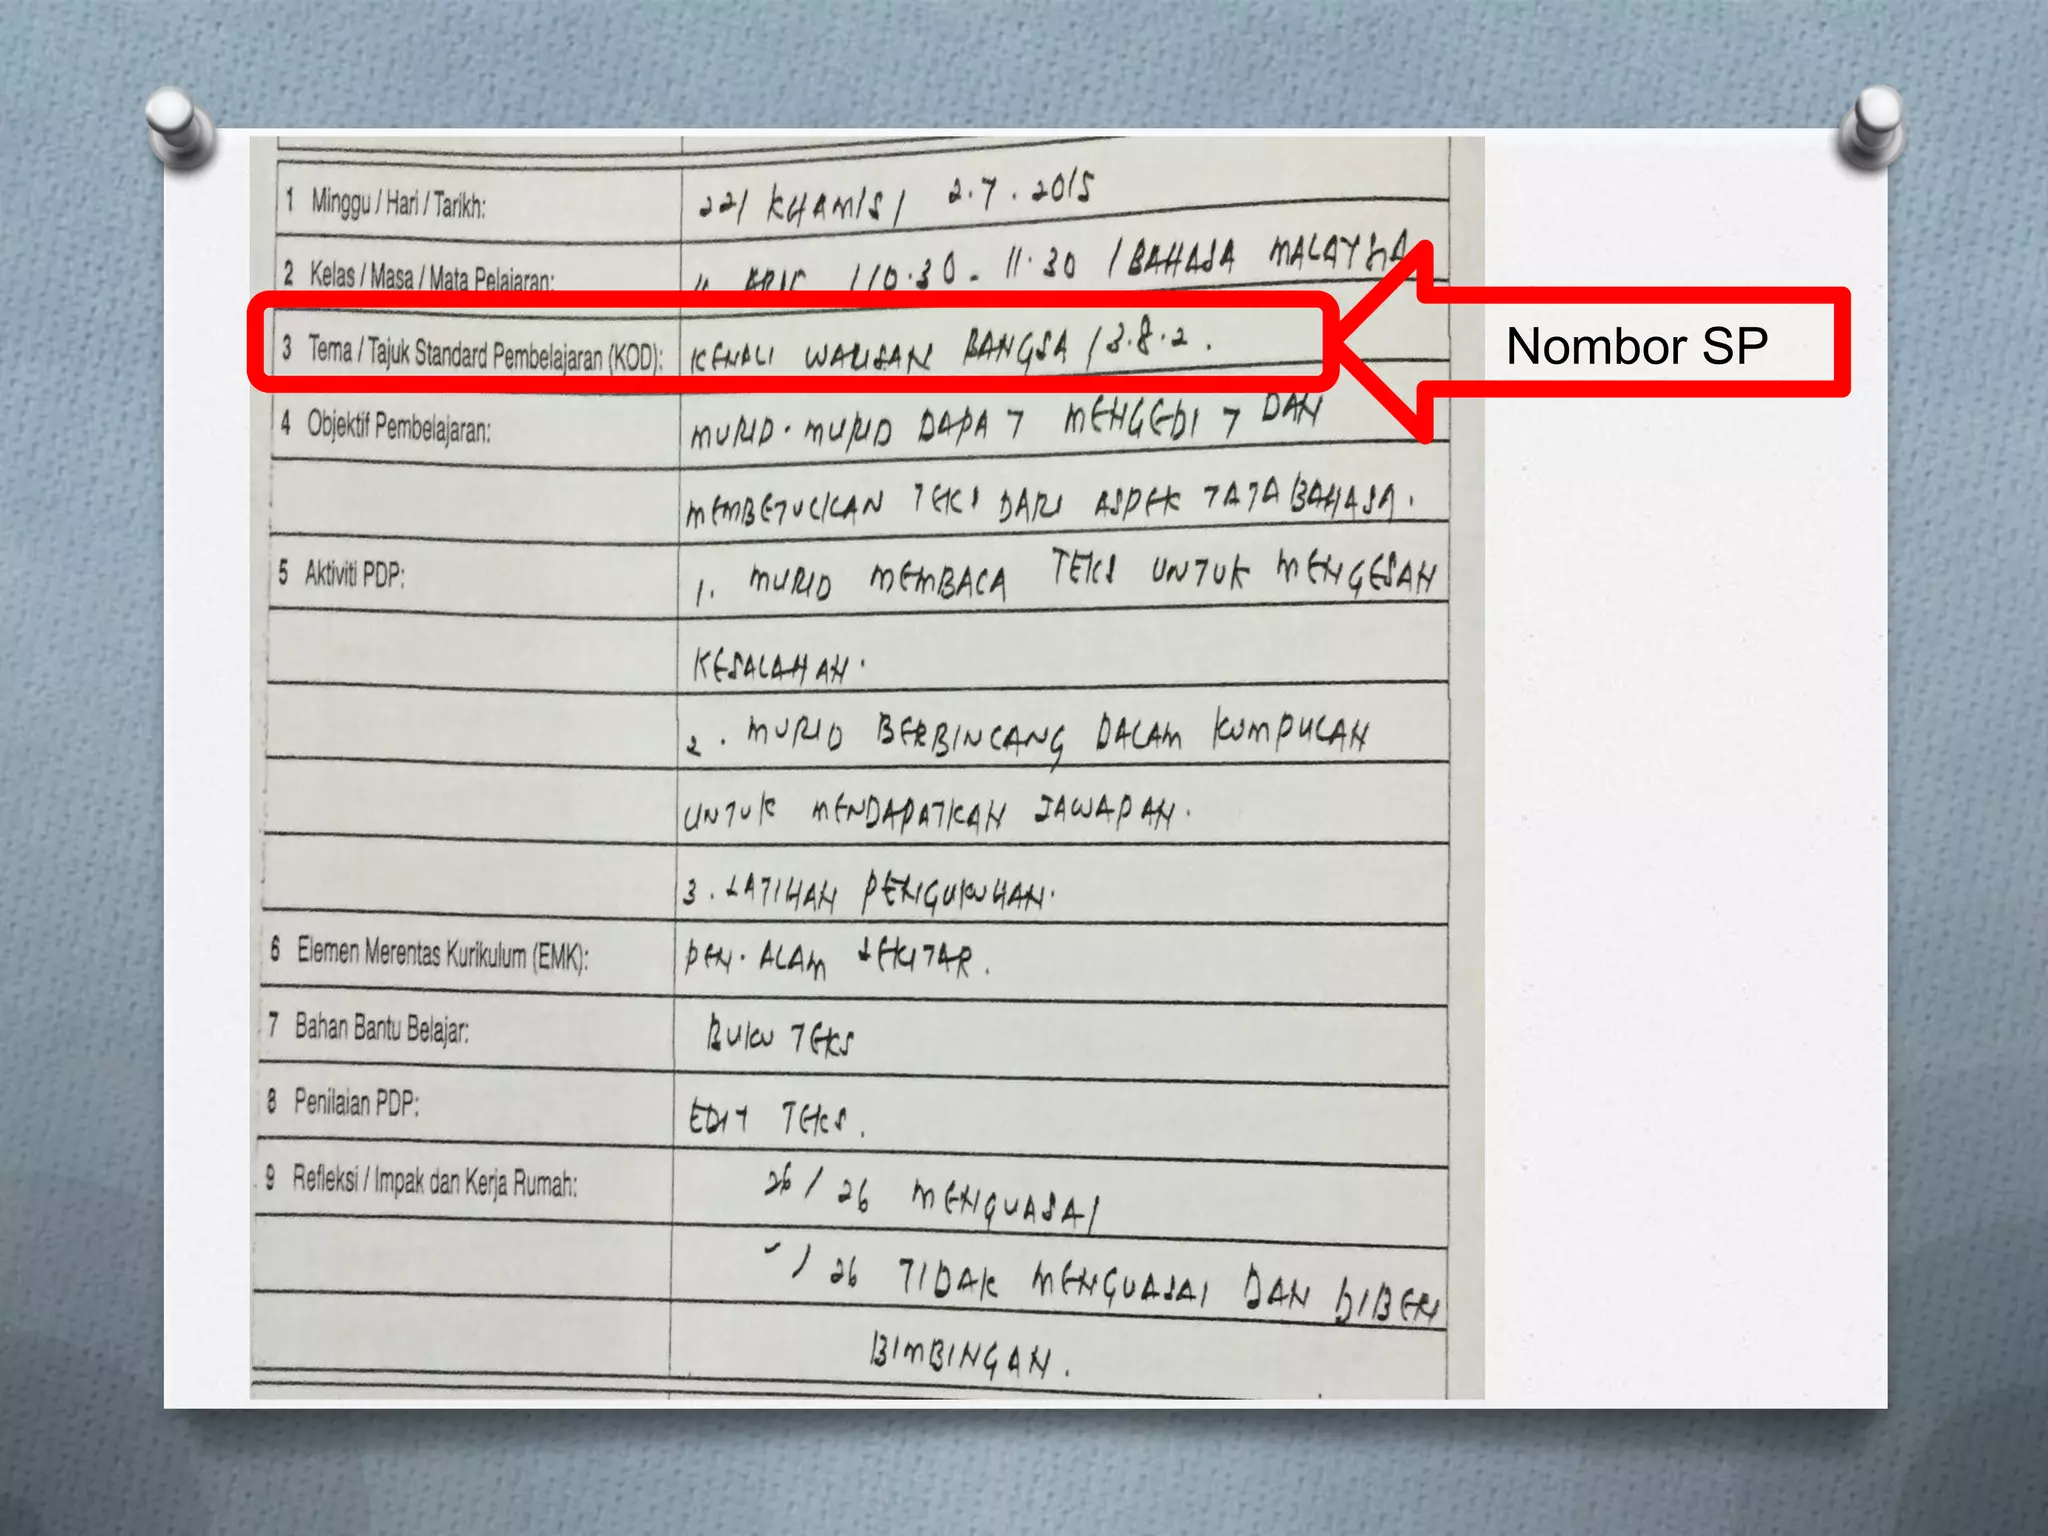 1 Minggu / Hari / Tarikh: 22/ KHAMIS / 2.7.2015
2 Kelas / Masa / Mata Pelajaran: / 10.30 - 11.30 / BAHASA MALAYSIA
3 Tema / Tajuk Standard Pembelajaran (KOD): KENALI WARISAN BANGSA / 3.8.2.
Nombor SP
4 Objektif Pembelajaran: MURID-MURID DAPAT MENGEDIT DAN
MEMBETULKAN TEKS DARI ASPEK TATABAHASA.
5 Aktiviti PDP: 1. MURID MEMBACA TEKS UNTUK MENGESAN
KESALAHAN.
2. MURID BERBINCANG DALAM KUMPULAN
UNTUK MENDAPATKAN JAWAPAN.
3. LATIHAN PENGUKUHAN.
6 Elemen Merentas Kurikulum (EMK): PEN. ALAM SEKITAR.
7 Bahan Bantu Belajar: BUKU TEKS
8 Penilaian PDP: EDIT TEKS.
9 Refleksi / Impak dan Kerja Rumah: 26 / 26 MENGUASAI
- / 26 TIDAK MENGUASAI DAN DIBERI
BIMBINGAN.